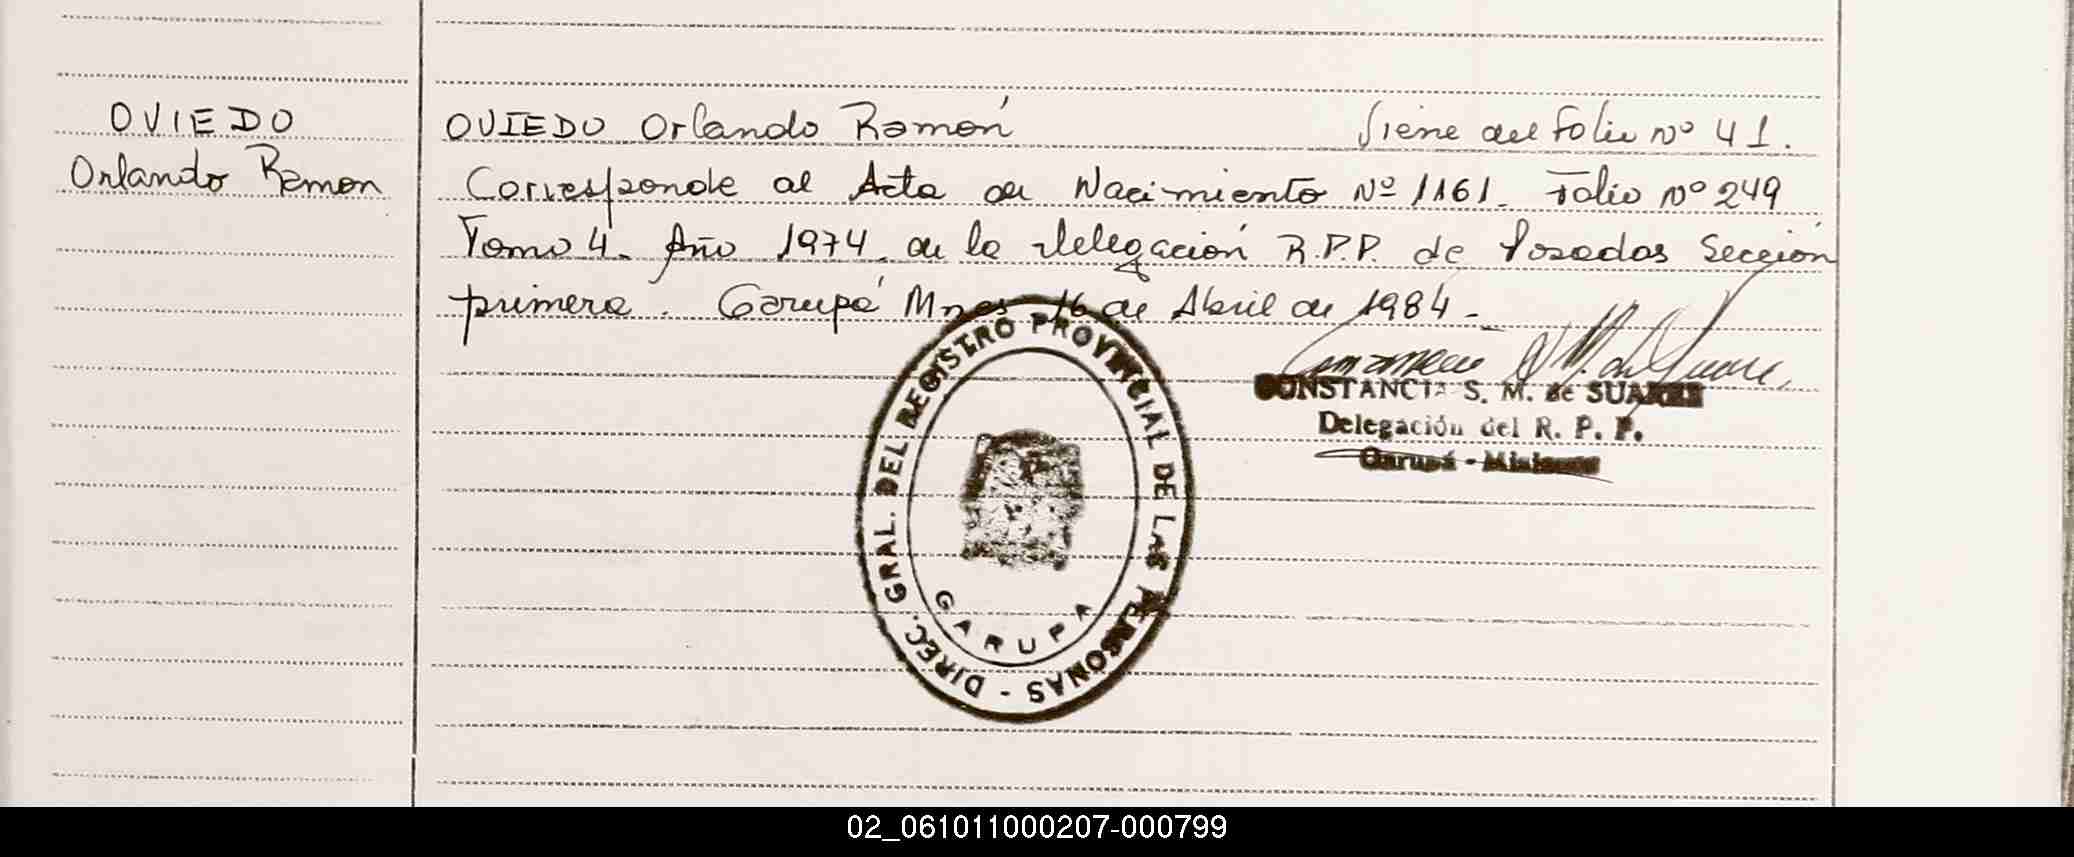 OVIEDO
Orlando Ramon
OVIEDO Orlando Ramón Viene del folio nº 41.
Corresponde al Acta de Nacimiento Nº 1161. Folio nº 249
Tomo 4. Año 1974. de la delegación R.P.P. de Posadas Sección
primera. Garupá Mnes 16 de Abril de 1984.-
CONSTANCIA S. M. de SUAREZ
Delegación del R. P. P.
Garupá - Misiones
DIREC. GRAL. DEL REGISTRO PROVINCIAL DE LAS PERSONAS -
GARUPA
02_061011000207-000799